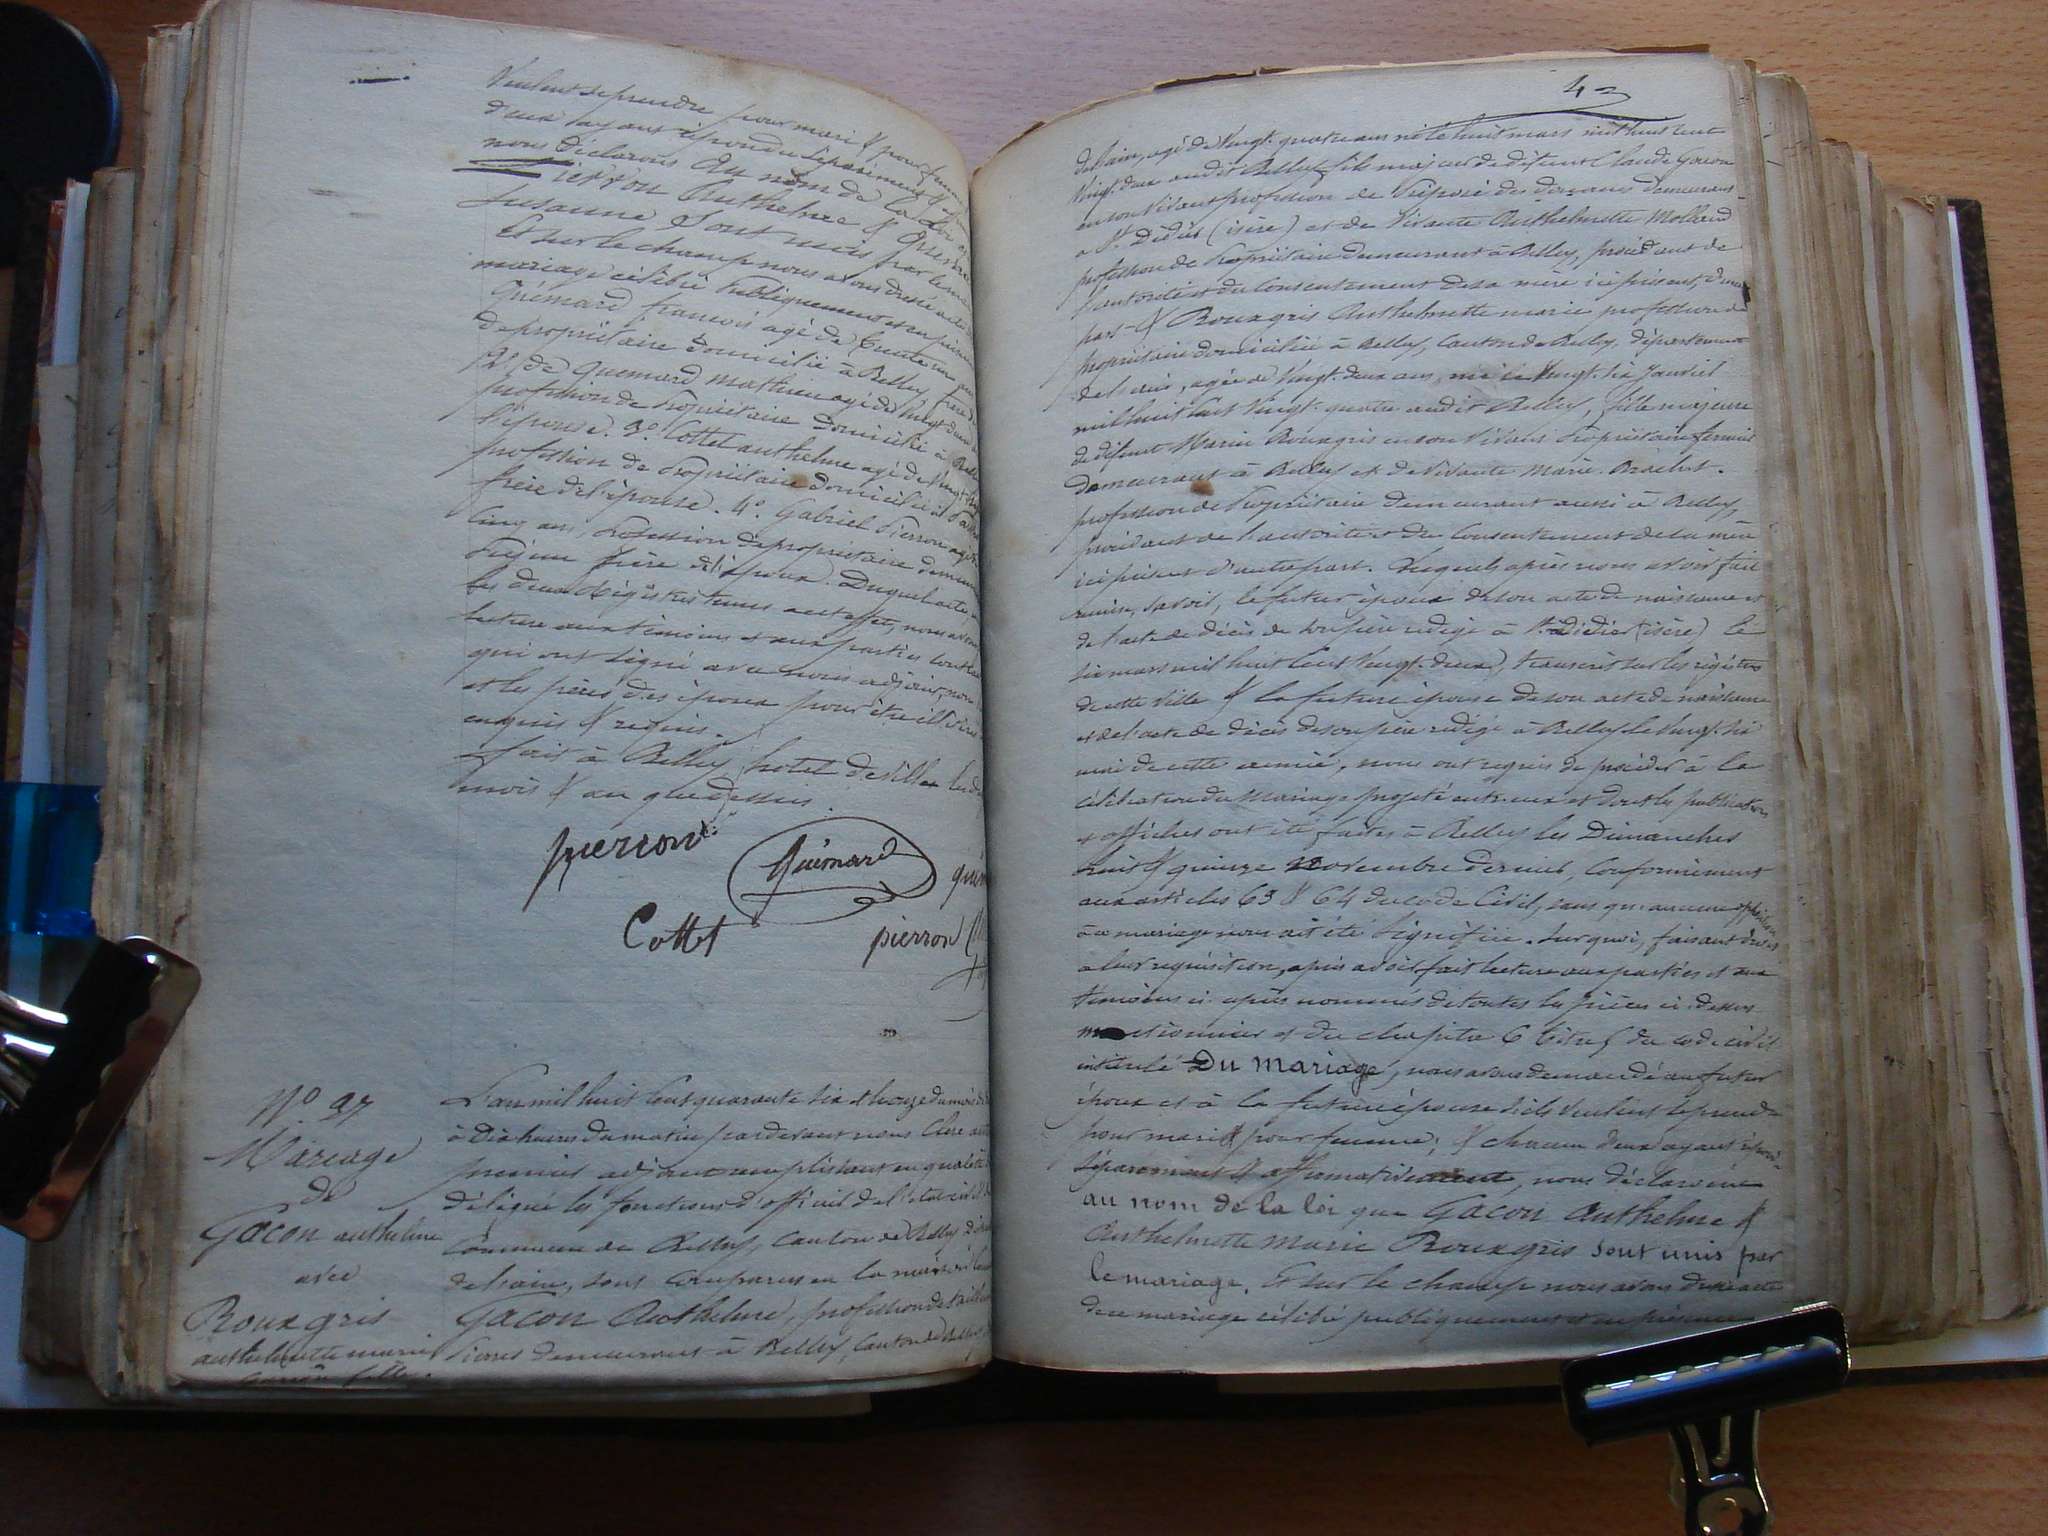 Veulent se prendre pour mari & pour femme
d'eux ayant répondu séparément &
nous déclarons Au nom de la Loi
Pierron Anthelme &
Susanne Sont unis par le
Et sur le champ nous avons dressé acte
mariage célébré Publiquement et en présence
Quémard françois agé de trente
de propriétaire domicilié à Belley, frère de
2° de Quemard Mathieu agé de vingt deux
profession de Propriétaire domicilié à Belley
l'épouse. 3° Cottet anthelme agé de vingt
profession de Propriétaire domicilié à
frère de l'épouse. 4° Gabriel Pierron agé
cinq ans, Profession de propriétaire
frère de l'époux. Duquel acte,
les deux Régistres tenus à cet effet, nous avons
lecture aux témoins et aux parties
qui ont signé avec nous adjoint,
et les pères des époux pour être
enquis & requis.
fait à Belley, hotel de Ville les
mois & an que dessus.
pierron
Quémard
Cottet
pierron
N° 37
Mariage
de
Gacon anthelme
avec
Rouxgris
anthelmette marie
L'an mil huit Cent quarante six & le onze du mois de
à Dix heures du matin par devant nous Clerc
premier adjoint remplissant en qualité de
délégué les fonctions d'officier de l'état civil de
Commune de Belley, Canton de Belley
de l'ain, sont Comparus en la maison
Gacon Anthelme, profession de tailleur
Pierres demeurant à Belley, Canton de Belley
43
de l'ain, agé de Vingt quatre ans né le huit mars mil huit cent
Vingt deux audit Belley, fils majeur de défunt Claude Gacon
en son Vivant profession de Préposé des douanes demeurant
a St Didier (isère) et de Vivante Anthelmette Mollard
profession de Propriétaire demeurant à Belley, procédant de
l'autorité et du Consentement de sa mère ici présente, d'une
part & Rouxgris Anthelmette marie profession de
propriétaire domiciliée à Belley, Canton de Belley, département
de l'ain, agée de Vingt deux ans, née le Vingt six Janvier
mil huit Cent Vingt quatre audit Belley, fille majeure
de défunt Marin Rouxgris en son Vivant Propriétaire fermier
demeurant à Belley et de Vivante Marie Brachet.
profession de Propriétaire demeurant aussi à Belley,
procédant de l'autorité et du Consentement de sa mère
ici présente d'autre part. Lesquels après nous avoir fait
remise, savoir, le futur époux de son acte de naissance et
de l'acte de décès de son père redigé à St Didier (isère) le
six mars mil huit Cent Vingt deux, transcrit sur les régistres
de cette Ville & la future épouse de son acte de naissance
et de l'acte de décès de son père redigé à Belley le Vingt six
mai de cette année, nous ont requis de procéder à la
célébration du Mariage projeté entr'eux et dont les publications
& affiches ont été faites à Belley les Dimanches
huit & quinze novembre dernier, Conformément
aux articles 63 & 64 du code Civil, sans qu'aucune opposition
à ce mariage nous ait été Signifiée. Sur quoi, faisant droit
a leur requisition, après avoir fait lecture aux parties et aux
témoins ci après nommés de toutes les pièces ci-dessus
mentionnées et du chapitre 6 titre 5 du code civil
intitulé Du mariage, nous avons demandé au futur
époux et à la future épouse s'ils Veulent se prendre
pour mari & pour femme; & chacun d'eux ayant répondu
Séparément & affirmativement, nous déclarons
au nom de la loi que Gacon Anthelme &
Anthelmette Marie Rouxgris sont unis par
le mariage. Et sur le champ nous avons dressé acte
de ce mariage célébré publiquement et en présence